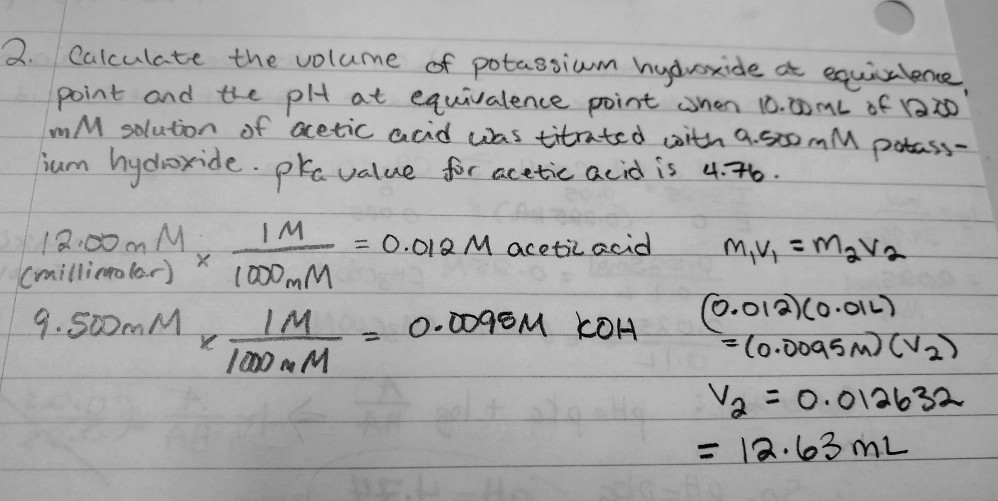 2. Calculate the volume of potassium hydroxide at equivalence
point and the pH at equivalence point when 10.00mL of 1200
mM solution of acetic acid was titrated with 9.500mM potass-
ium hydroxide. pka value for acetic acid is 4.76.
12.00mM × 1M / 1000mM = 0.012M acetic acid
(millimolar)
M₁V₁ = M₂V₂
9.500mM × 1M / 1000mM = 0.0095M KOH
(0.012)(0.01L)
= (0.0095M)(V₂)
V₂ = 0.012632
= 12.63 mL